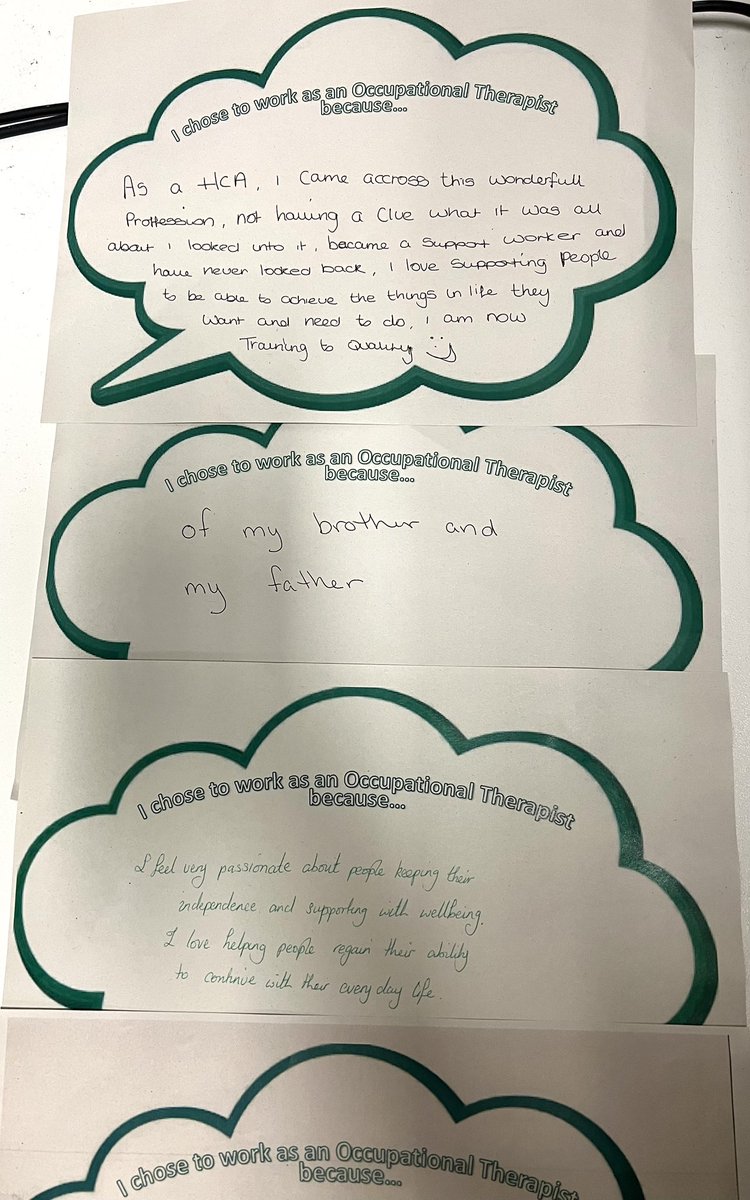 I chose to work as an Occupational Therapist
because...
As a HCA, I came accross this wonderfull
Proffession, not having a clue what it was all
about I looked into it, became a support worker and
have never looked back, I love supporting people
to be able to achieve the things in life they
want and need to do, I am now
Training to Qualify
I chose to work as an Occupational Therapist
because...
of my brother and
my father
I chose to work as an Occupational Therapist
because...
I feel very passionate about people keeping their
independence and supporting with wellbeing.
I love helping people regain their ability
to continue with their every day life.
I chose to work as an Occupational Therapist
because...